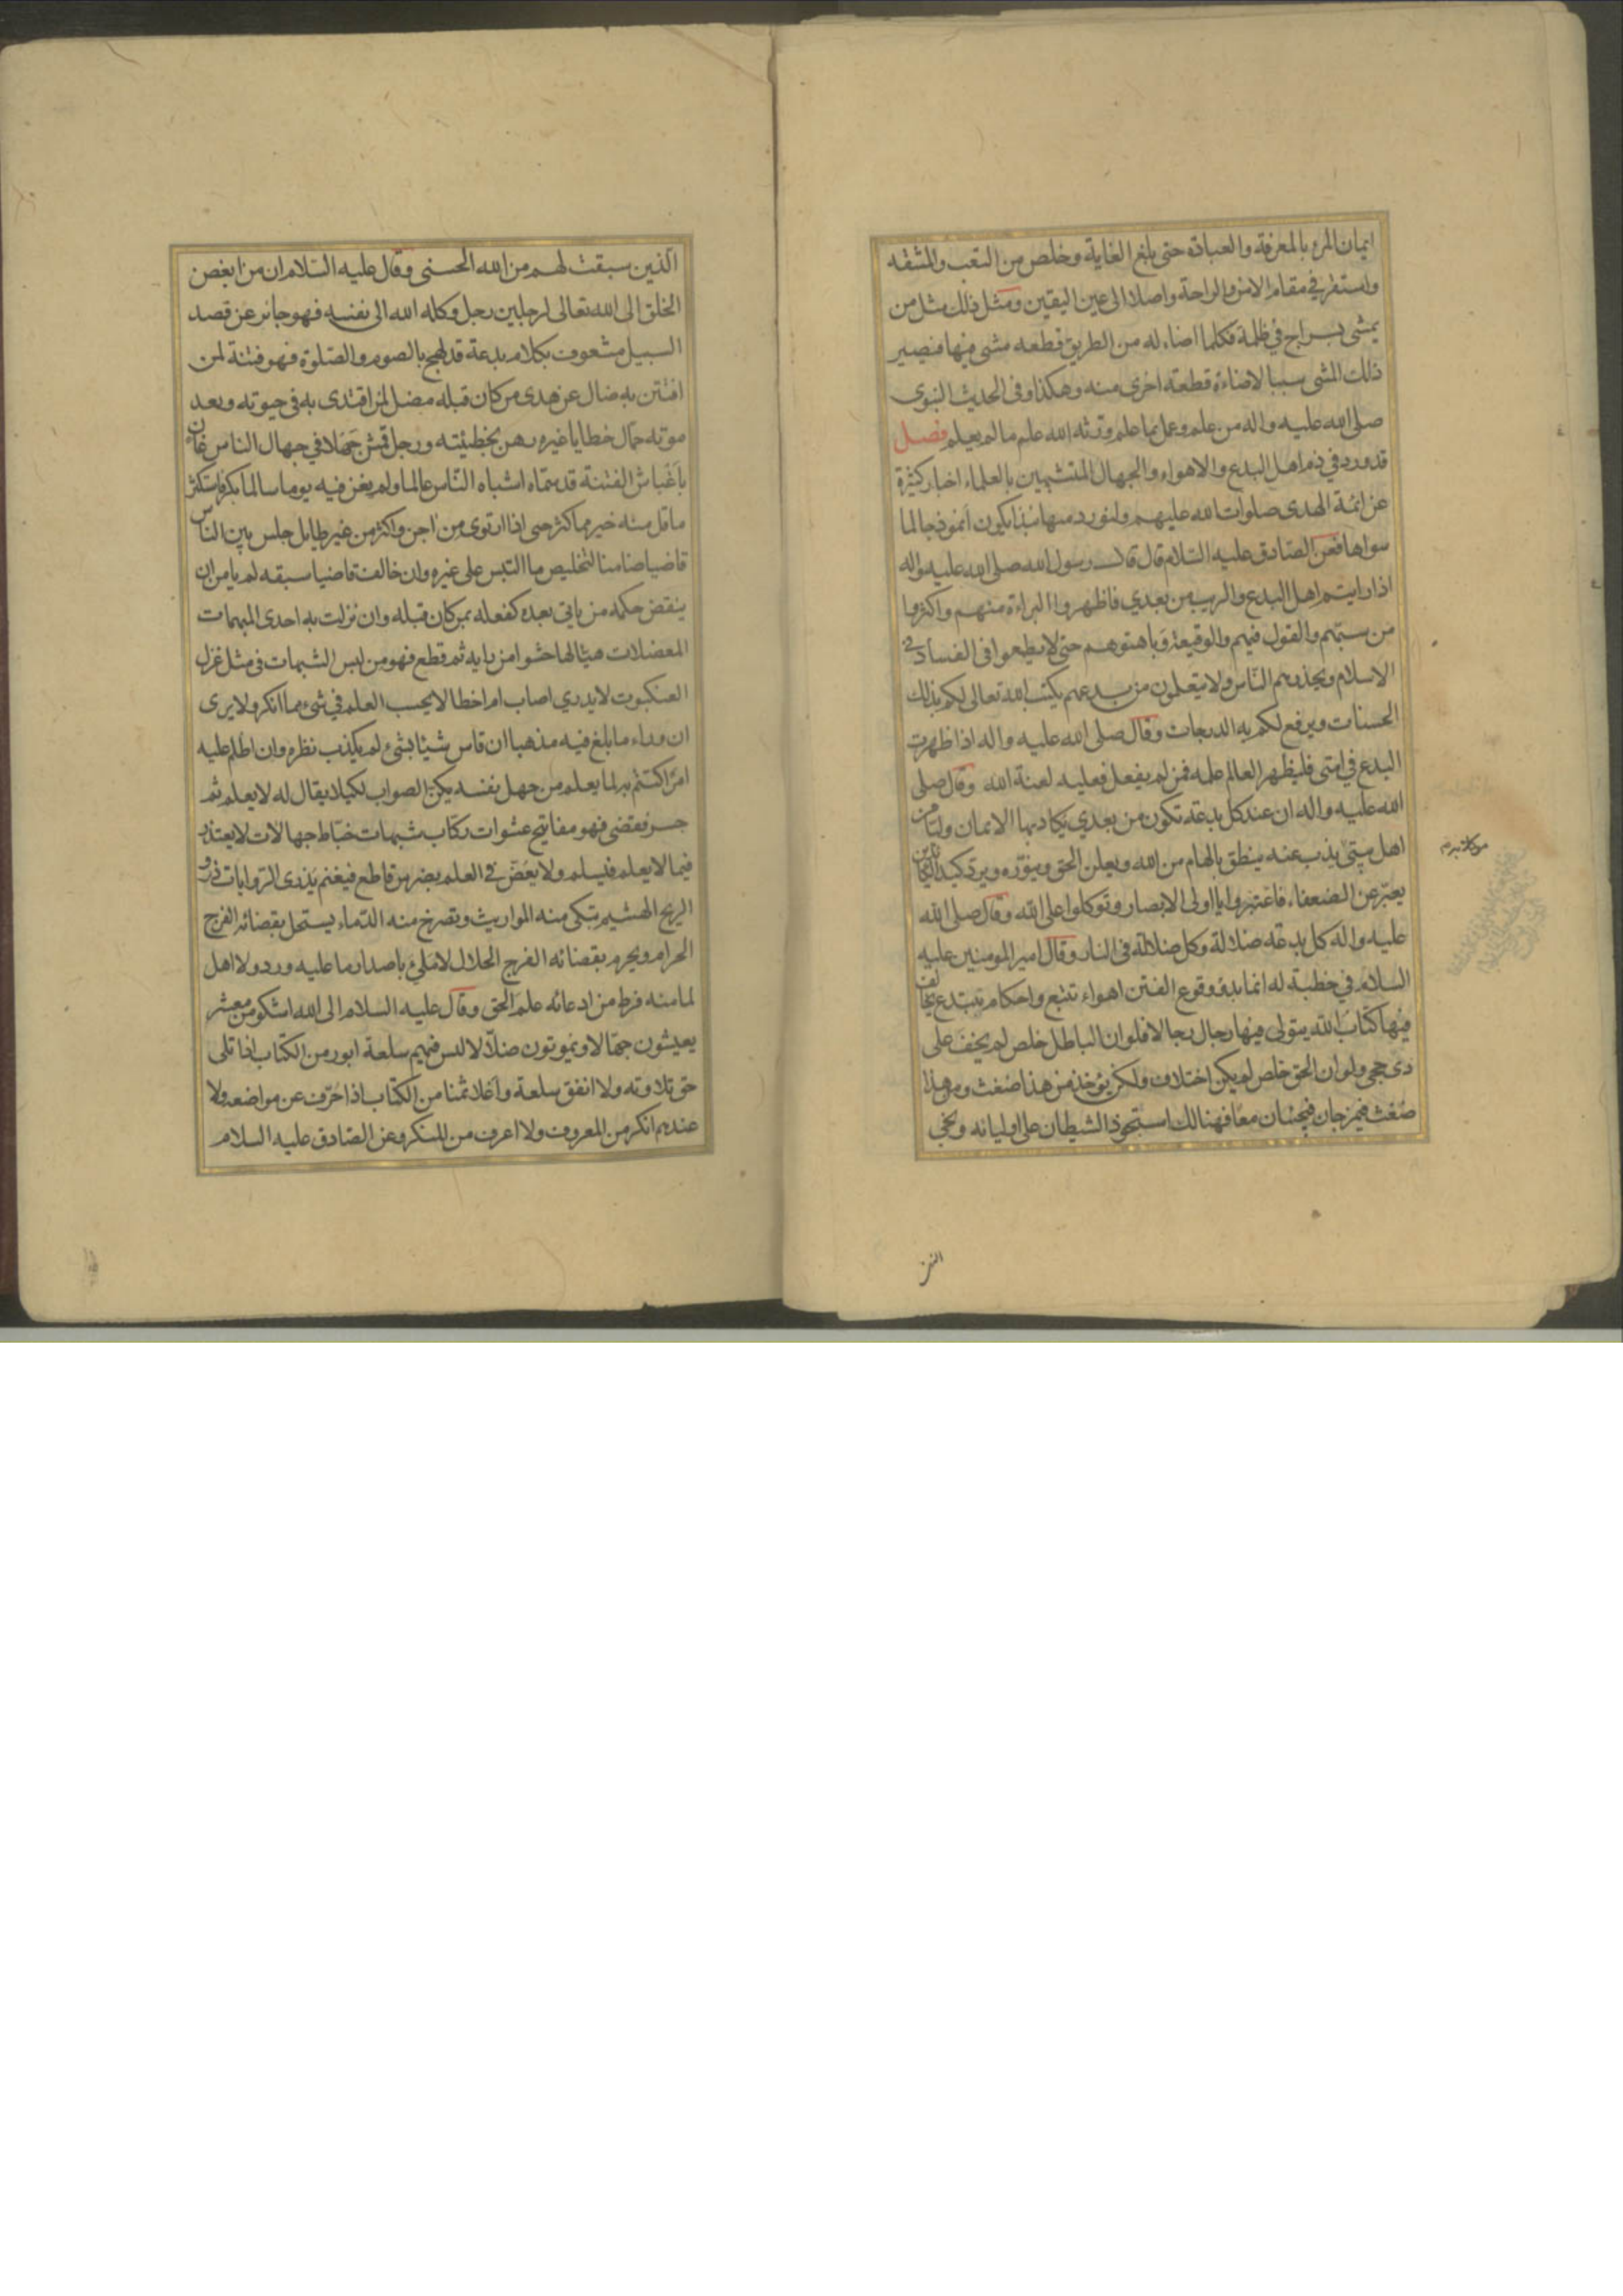 ايمان المرء بالمعرفة والعبادة حتى بلغ الغاية وخلص من التعب والمشقه
واستقر في مقام الامن والراحة واصلا الى عين اليقين ومثل ذلك مثل من
يمشى بسراج في ظلمة فكلما اضاء له من الطريق قطعه مشى فيها فيصير
ذلك المشى سببا لاضاءة قطعته اخرى منه وهكذا وفى الحديث النبوى
صلى الله عليه واله من علم وعمل بما علم ورثه الله علم ما لم يعلم فصل
قد ورد في ذم اهل البدع والاهواء والجهال المتشبهين بالعلماء اخبار كثيرة
عن ائمة الهدى صلوات الله عليهم ولنورد منها نبذا يكون انموذجا لما
سواها فعن الصادق عليه السلام قال قال رسول الله صلى الله عليه واله
اذا رايتم اهل البدع والريب من بعدي فاظهروا البراءة منهم واكثروا
من سبتهم والقول فيهم والوقيعة وباهتوهم حتى لا يطمعوا فى الفساد في
الاسلام ويحذرهم الناس ولا يتعلمون من بدعهم يكتب الله تعالى لكم بذلك
الحسنات ويرفع لكم به الدرجات وقال صلى الله عليه واله اذا ظهرت
البدع في امتى فليظهر العالم علمه فمن لم يفعل فعليه لعنة الله وقال صلى
الله عليه واله ان عند كل بدعة تكون من بعدي يكاد بها الايمان وليا من
اهل بيتى يذب عنه ينطق بالهام من الله ويعلن الحق وينوره ويرد كيد الكائدين
يعبر عن الضعفاء فاعتبروا يا اولى الابصار وتوكلوا على الله وقال صلى الله
عليه واله كل بدعه ضلالة وكل ضلالة فى النار وقال امير المومنين عليه
السلام في خطبة له انما بدؤ وقوع الفتن اهواء تتبع واحكام تبتدع يخالف
فيها كتاب الله يتولى فيها رجال رجالا فلو ان الباطل خلص لم يخف على
ذى حجى ولو ان الحق خلص لم يكن اختلاف ولكن يؤخذ من هذا ضغث ومن هذا
ضغث فيمزجان فيجيئان معا فهنالك استحوذ الشيطان على اوليائه ونجى
الذين
الذين سبقت لهم من الله الحسنى وقال عليه السلام ان من ابغض
الخلق الى الله تعالى لرجلين رجل وكله الله الى نفسه فهو جائر عن قصد
السبيل مشعوف بكلام بدعة قد لهج بالصوم والصلوة فهو فتنة لمن
افتتن به ضال عن هدى من كان قبله مضل لمن اقتدى به فى حيوته وبعد
موته حمال خطايا غيره رهن بخطيئته ورجل قمش جهلا في جهال الناس عان
باغباش الفتنة قد سماه اشباه الناس عالما ولم يغن فيه يوما سالما بكر فاستكثر
ما قل منه خير مما كثر حتى اذا ارتوى من اجن واكثر من غير طايل جلس بين الناس
قاضيا ضامنا لتخليص ما التبس على غيره وان خالف قاضيا سبقه لم يامن ان
ينقض حكمه من ياتى بعده كفعله بمن كان قبله وان نزلت به احدى المبهمات
المعضلات هيا لها حشوا من رايه ثم قطع فهو من لبس الشبهات فى مثل غزل
العنكبوت لا يدري اصاب ام اخطا لا يحسب العلم في شئ مما انكر ولا يرى
ان وراء ما بلغ فيه مذهبا ان قاس شيئا بشئ لم يكذب نظره وان اظلم عليه
امر اكتتم به لما يعلم من جهل نفسه يكن الصواب لكيلا يقال له لا يعلم ثم
جسر فقضى فهو مفاتيح عشوات ركاب شبهات خباط جهالات لا يعتذر
فيما لا يعلم فيسلم ولا يعض في العلم بضرس قاطع فيغنم يذرى الروايات ذرو
الريح الهشيم تبكى منه المواريث وتصرخ منه الدماء يستحل بقضائه الفرج
الحرام ويحرم بقضائه الفرج الحلال لا ملئ باصدار ما عليه ورد ولا اهل
لما منه فرط من ادعائه علم الحق وقال عليه السلام الى الله اشكو من معشر
يعيشون جهالا ويموتون ضلالا ليس فيهم سلعة ابور من الكتاب اذا تلى
حق تلاوته ولا انفق سلعة واغلا ثمنا من الكتاب اذا حرف عن مواضعه ولا
عندهم انكر من المعروف ولا اعرف من المنكر وعن الصادق عليه السلام